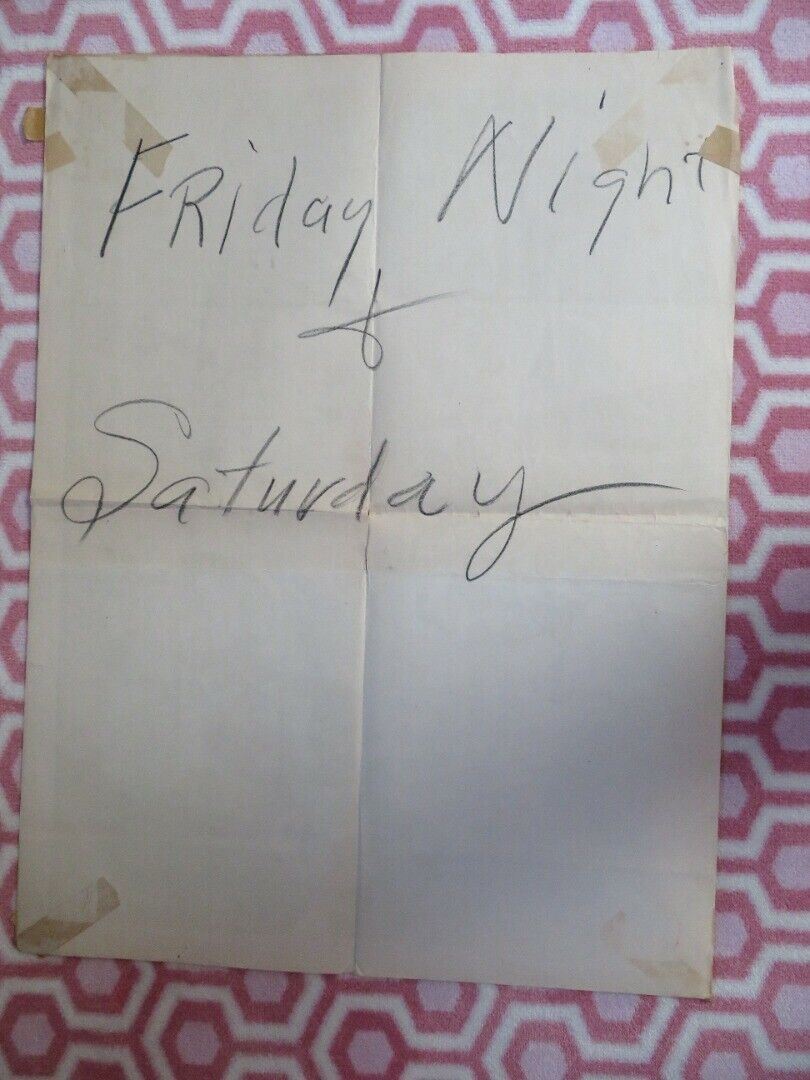 FRiday Night
&
Saturday